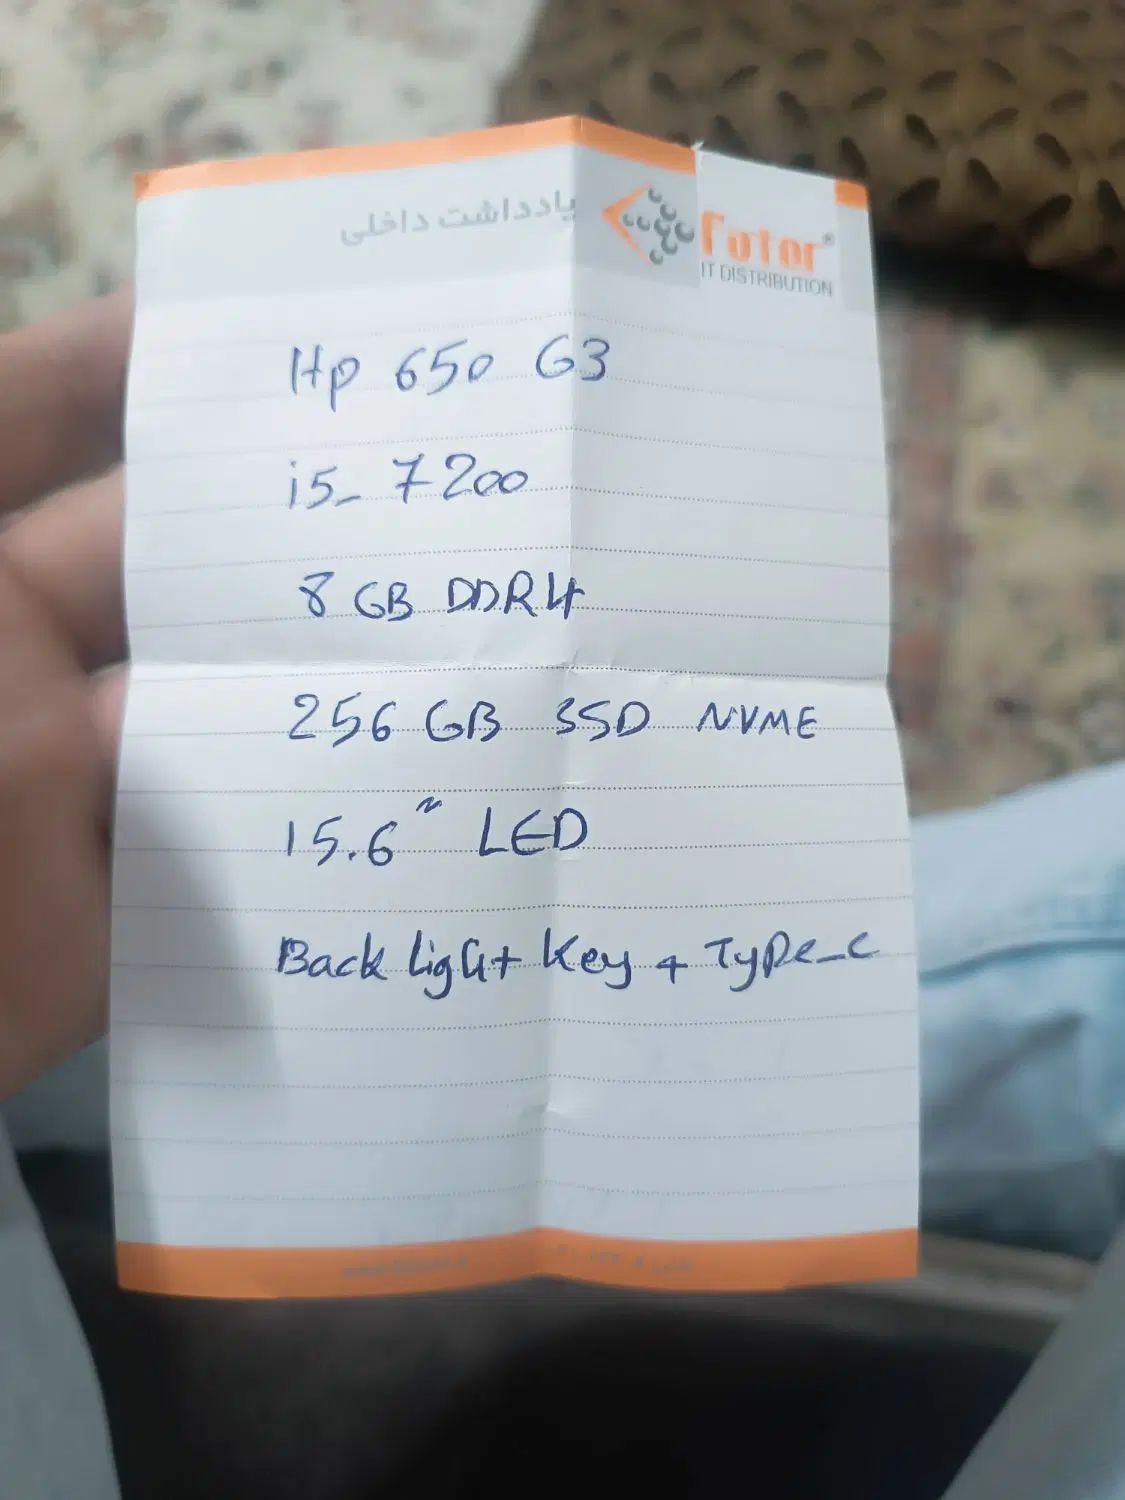 یادداشت داخلی
Futor®
IT DISTRIBUTION
Hp 650 G3
i5_ 7200
8 GB DDR4
256 GB SSD NVME
15.6" LED
Back light Key + Type_c